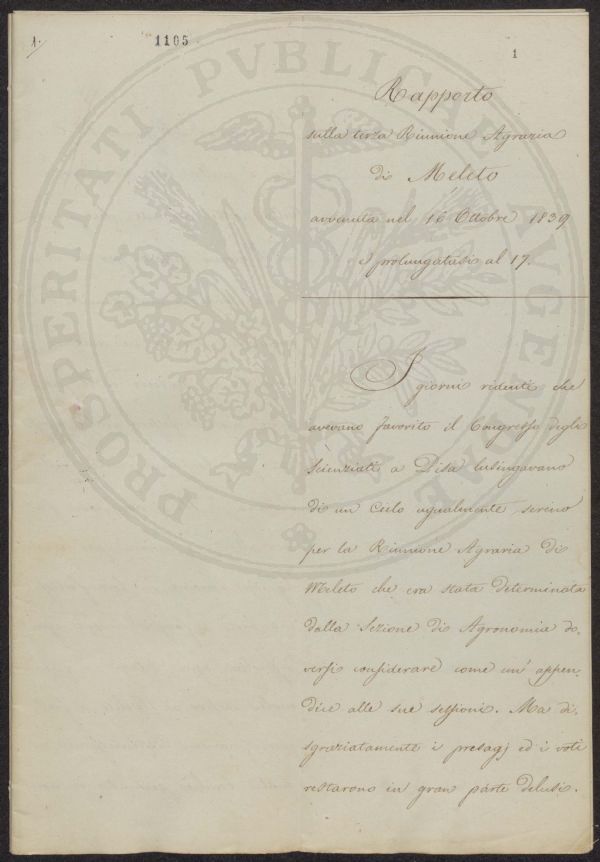 1.
1105
1
Rapporto
sulla terza Riunione Agraria
di Meleto
avvenuta nel 16 Ottobre 1839
e prolungatasi al 17.
I giorni ridenti che
avevano favorito il Congresso degli
Scienziati a Pisa lusingavano
di un Cielo ugualmente sereno
per la Riunione Agraria di
Meleto che era stata determinata
dalla Sezione di Agronomia do-
versi considerare come un' appen-
dice alle sue sessioni. Ma di-
sgraziatamente i presagj ed i voti
restarono in gran parte delusi.
PROSPERITATI PVBLICAE AVGENDAE